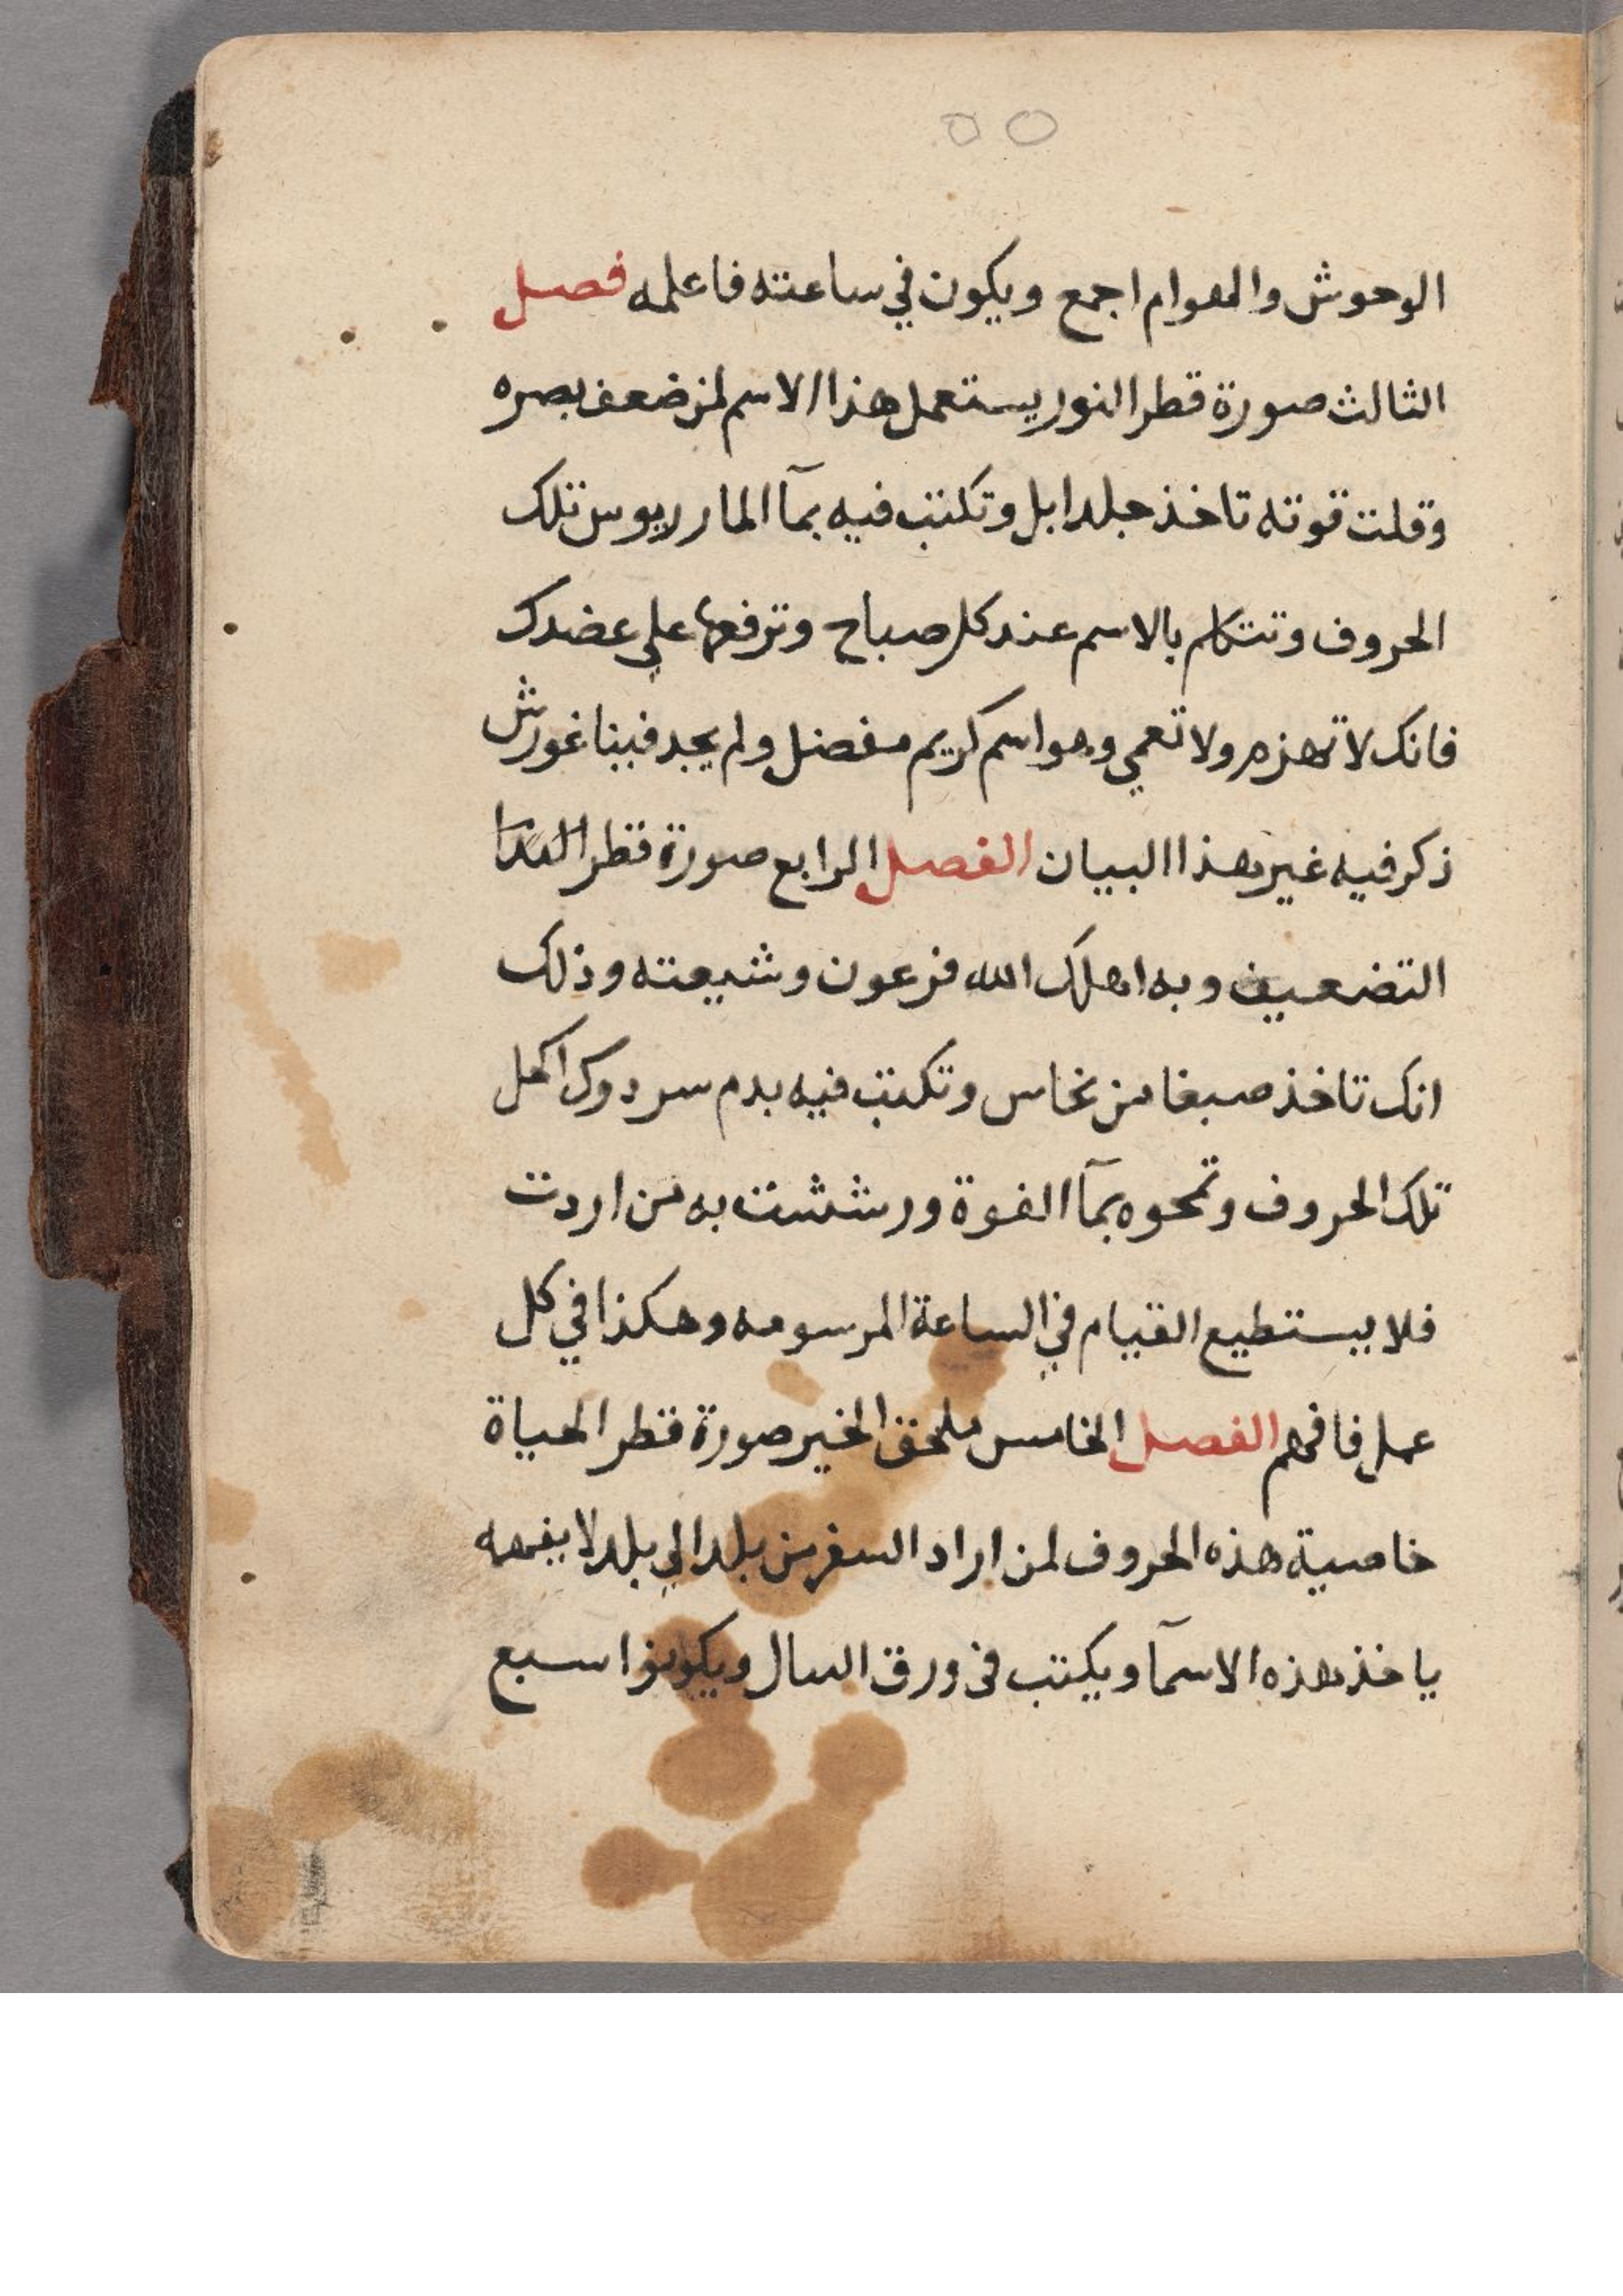 ٥٥
الوحوش والهوام اجمع ويكون في ساعته فاعلمه فصل
الثالث صورة قطر النور يستعمل هذا الاسم لمن ضعف بصره
وقلت قوته تاخذ جلد ابل وتكتب فيه بمآ المار ريوس تلك
الحروف وتتكلم بالاسم عند كل صباح وترفعها علي عضدك
فانك لا تهزم ولا تعمي وهو اسم كريم مفضل ولم يجد فيثاغورش
ذكر فيه غير هذا البيان الفصل الرابع صورة قطر
التضعيف وبه اهلك الله فرعون وشيعته وذلك
انك تاخذ صبغا من نحاس وتكتب فيه بدم سردوك اكحل
تلك الحروف وتمحوه بمآ الفوة ورششت به من اردت
فلا يستطيع القيام في الساعة المرسومه وهكذا في كل
عمل فافهم الفصل الخامس ملحق الخير صورة قطر الحياة
خاصية هذه الحروف لمن اراد السفر من بلد الي بلد لا يفهمه
ياخذ هذه الاسمآ ويكتب في ورق السال ويكونوا سبع